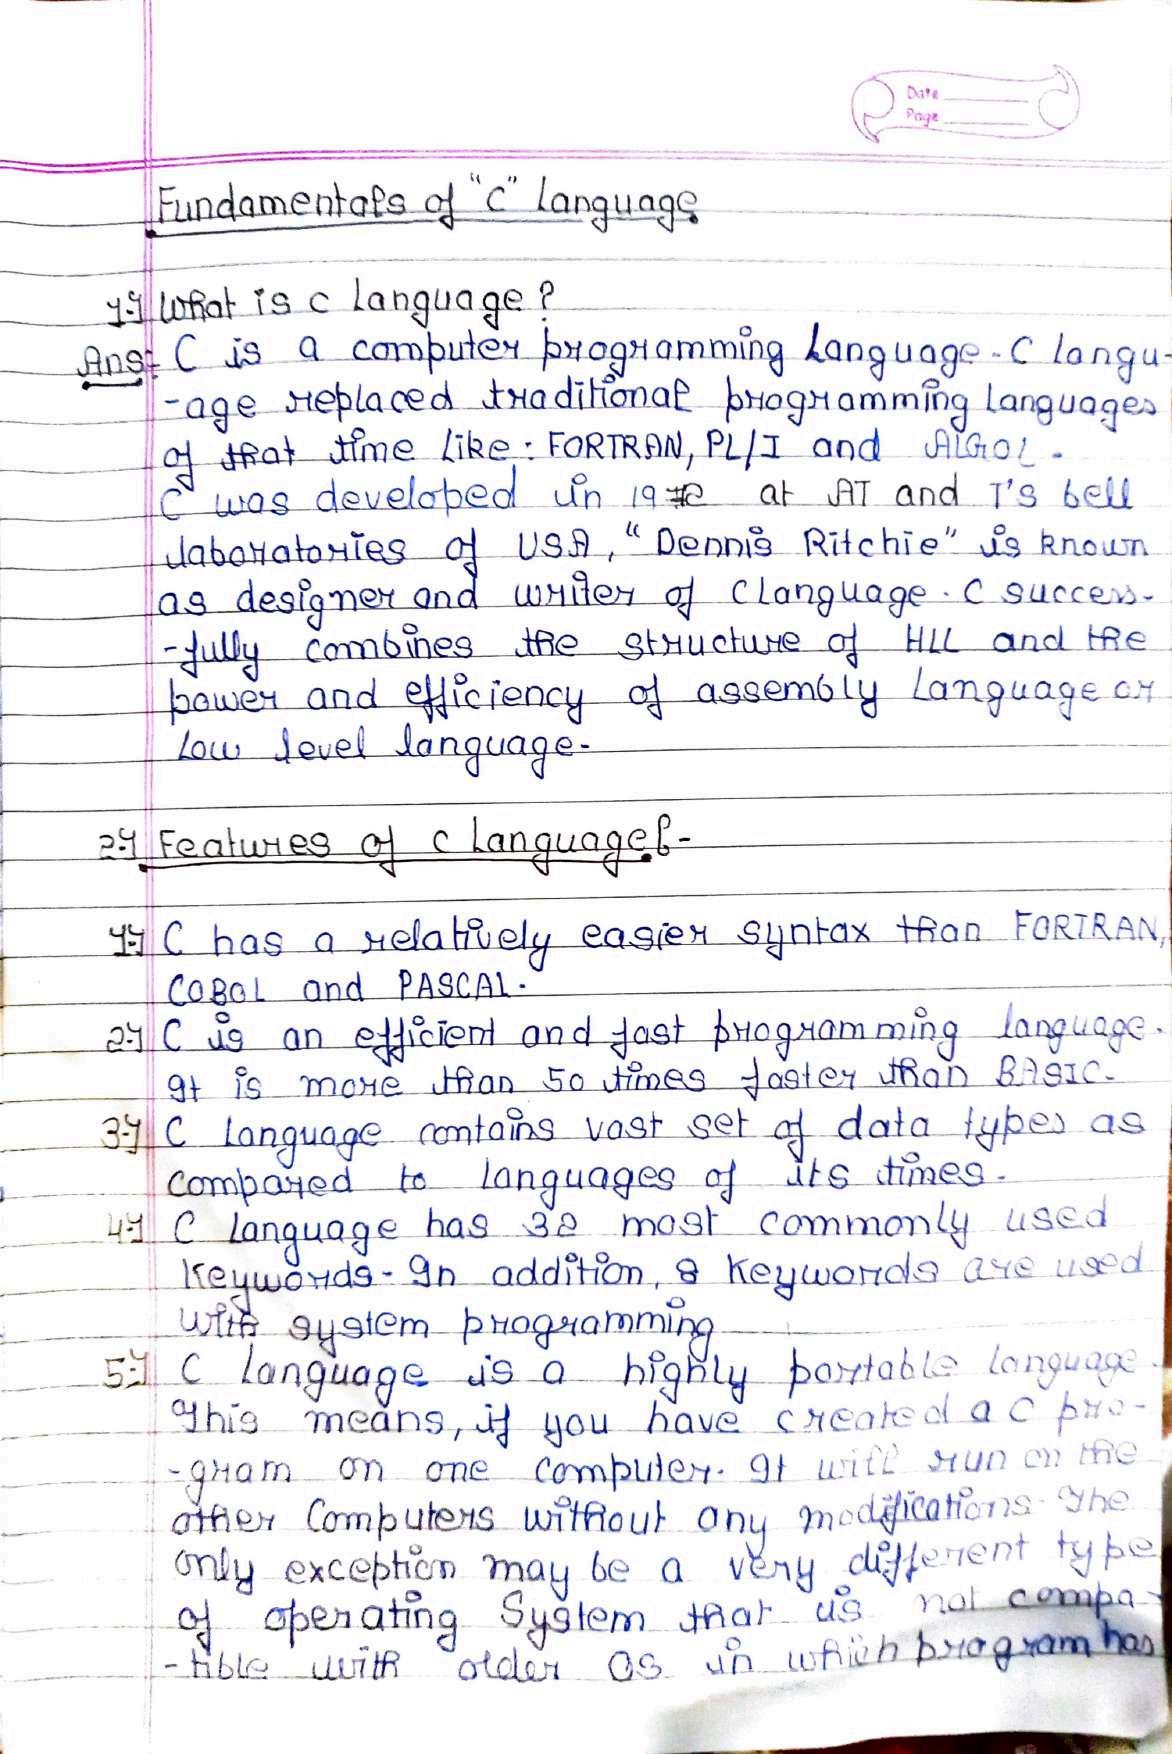 Date
Page
Fundamentals of "C" Language
1.) What is C Language?
Ans:- C is a computer programming Language. C langu-
-age replaced traditional programming Languages
of that time Like: FORTRAN, PL/I and ALGOL.
C was developed in 1972 at AT and T's bell
laboratories of USA, "Dennis Ritchie" is known
as designer and writer of C Language. C success-
-fully combines the structure of HLL and the
power and efficiency of assembly Language or
Low level language.
2.) Features of C Language:-
1.) C has a relatively easier syntax than FORTRAN,
COBOL and PASCAL.
2.) C is an efficient and fast programming language.
It is more than 50 times faster than BASIC.
3.) C Language contains vast set of data types as
compared to Languages of its times.
4.) C Language has 32 most commonly used
Keywords. In addition, 8 Keywords are used
with system programming
5.) C Language is a highly portable language.
This means, if you have created a C pro-
-gram on one computer. It will run on the
other Computers without any modifications. The
only exception may be a very different type
of operating System that is not compa-
-tible with older OS in which program has